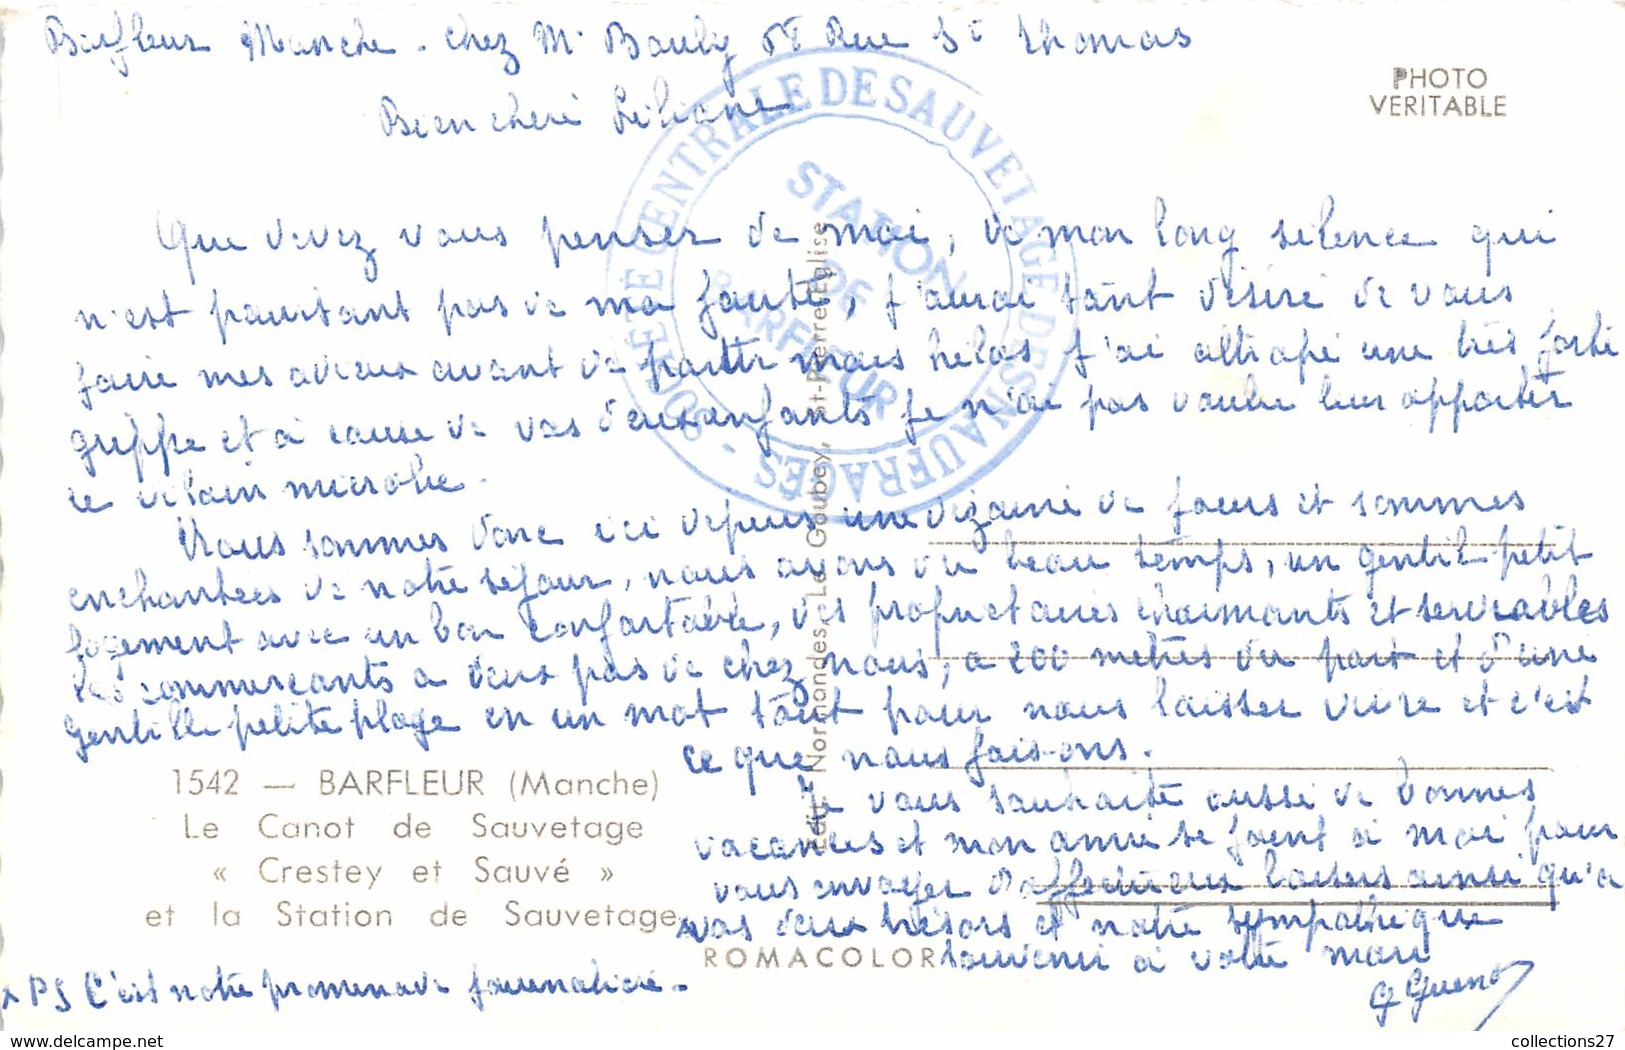 Barfleur Manche - chez Mr Bouly Rue St Thomas
PHOTO
VERITABLE
Bien chère Liliane
Que devez vous penser de moi, de mon long silence qui
n'est pourtant pas de ma faute, j'aurai tant désiré de vous
faire mes adieux avant de partir mais hélas j'ai attrapé une très forte
grippe et à cause de vos deux enfants je n'ai pas voulu leur apporter
ce vilain microbe.
Nous sommes donc ici depuis une dizaine de jours et sommes
enchantées de notre séjour, nous avons du beau temps, un gentil petit
logement avec un bon confortable, des propriétaires charmants et serviables
les commerçants à deux pas de chez nous, à 200 mètres du port et d'une
gentille petite plage en un mot tout pour nous laisser vivre et c'est
ce que nous fais-ons.
Je vous souhaite aussi de bonnes
vacances et mon amie se joint à moi pour
vous envoyer d'affectueux baisers ainsi qu'à
vos deux trésors et notre sympathique
souvenir à votre mari
G Gueno
x PS C'est notre promenade journalière.
1542 — BARFLEUR (Manche)
Le Canot de Sauvetage
« Crestey et Sauvé »
et la Station de Sauvetage
ROMACOLOR
Edit. Normandes Le Goubey, St-Pierre-Eglise
SOCIÉTÉ CENTRALE DE SAUVETAGE DES NAUFRAGÉS -
STATION
DE
BARFLEUR
collections27